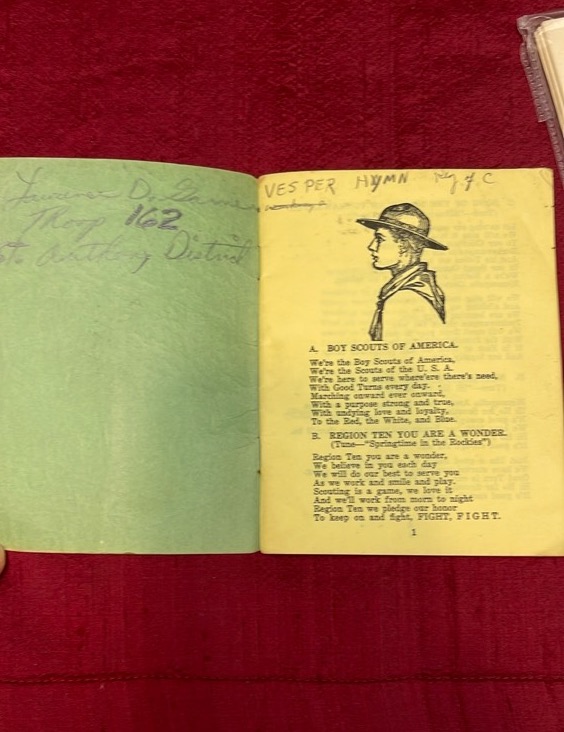 D.
Troop 162
Anthony District
VESPER HYMN Key of C
A. BOY SCOUTS OF AMERICA.
We're the Boy Scouts of America,
We're the Scouts of the U. S. A.
We're here to serve where'ere there's need,
With Good Turns every day.
Marching onward ever onward,
With a purpose strong and true,
With undying love and loyalty,
To the Red, the White, and Blue.
B. REGION TEN YOU ARE A WONDER.
(Tune—"Springtime in the Rockies")
Region Ten you are a wonder,
We believe in you each day
We will do our best to serve you
As we work and smile and play.
Scouting is a game, we love it
And we'll work from morn to night
Region Ten we pledge our honor
To keep on and fight, FIGHT, FIGHT.
1